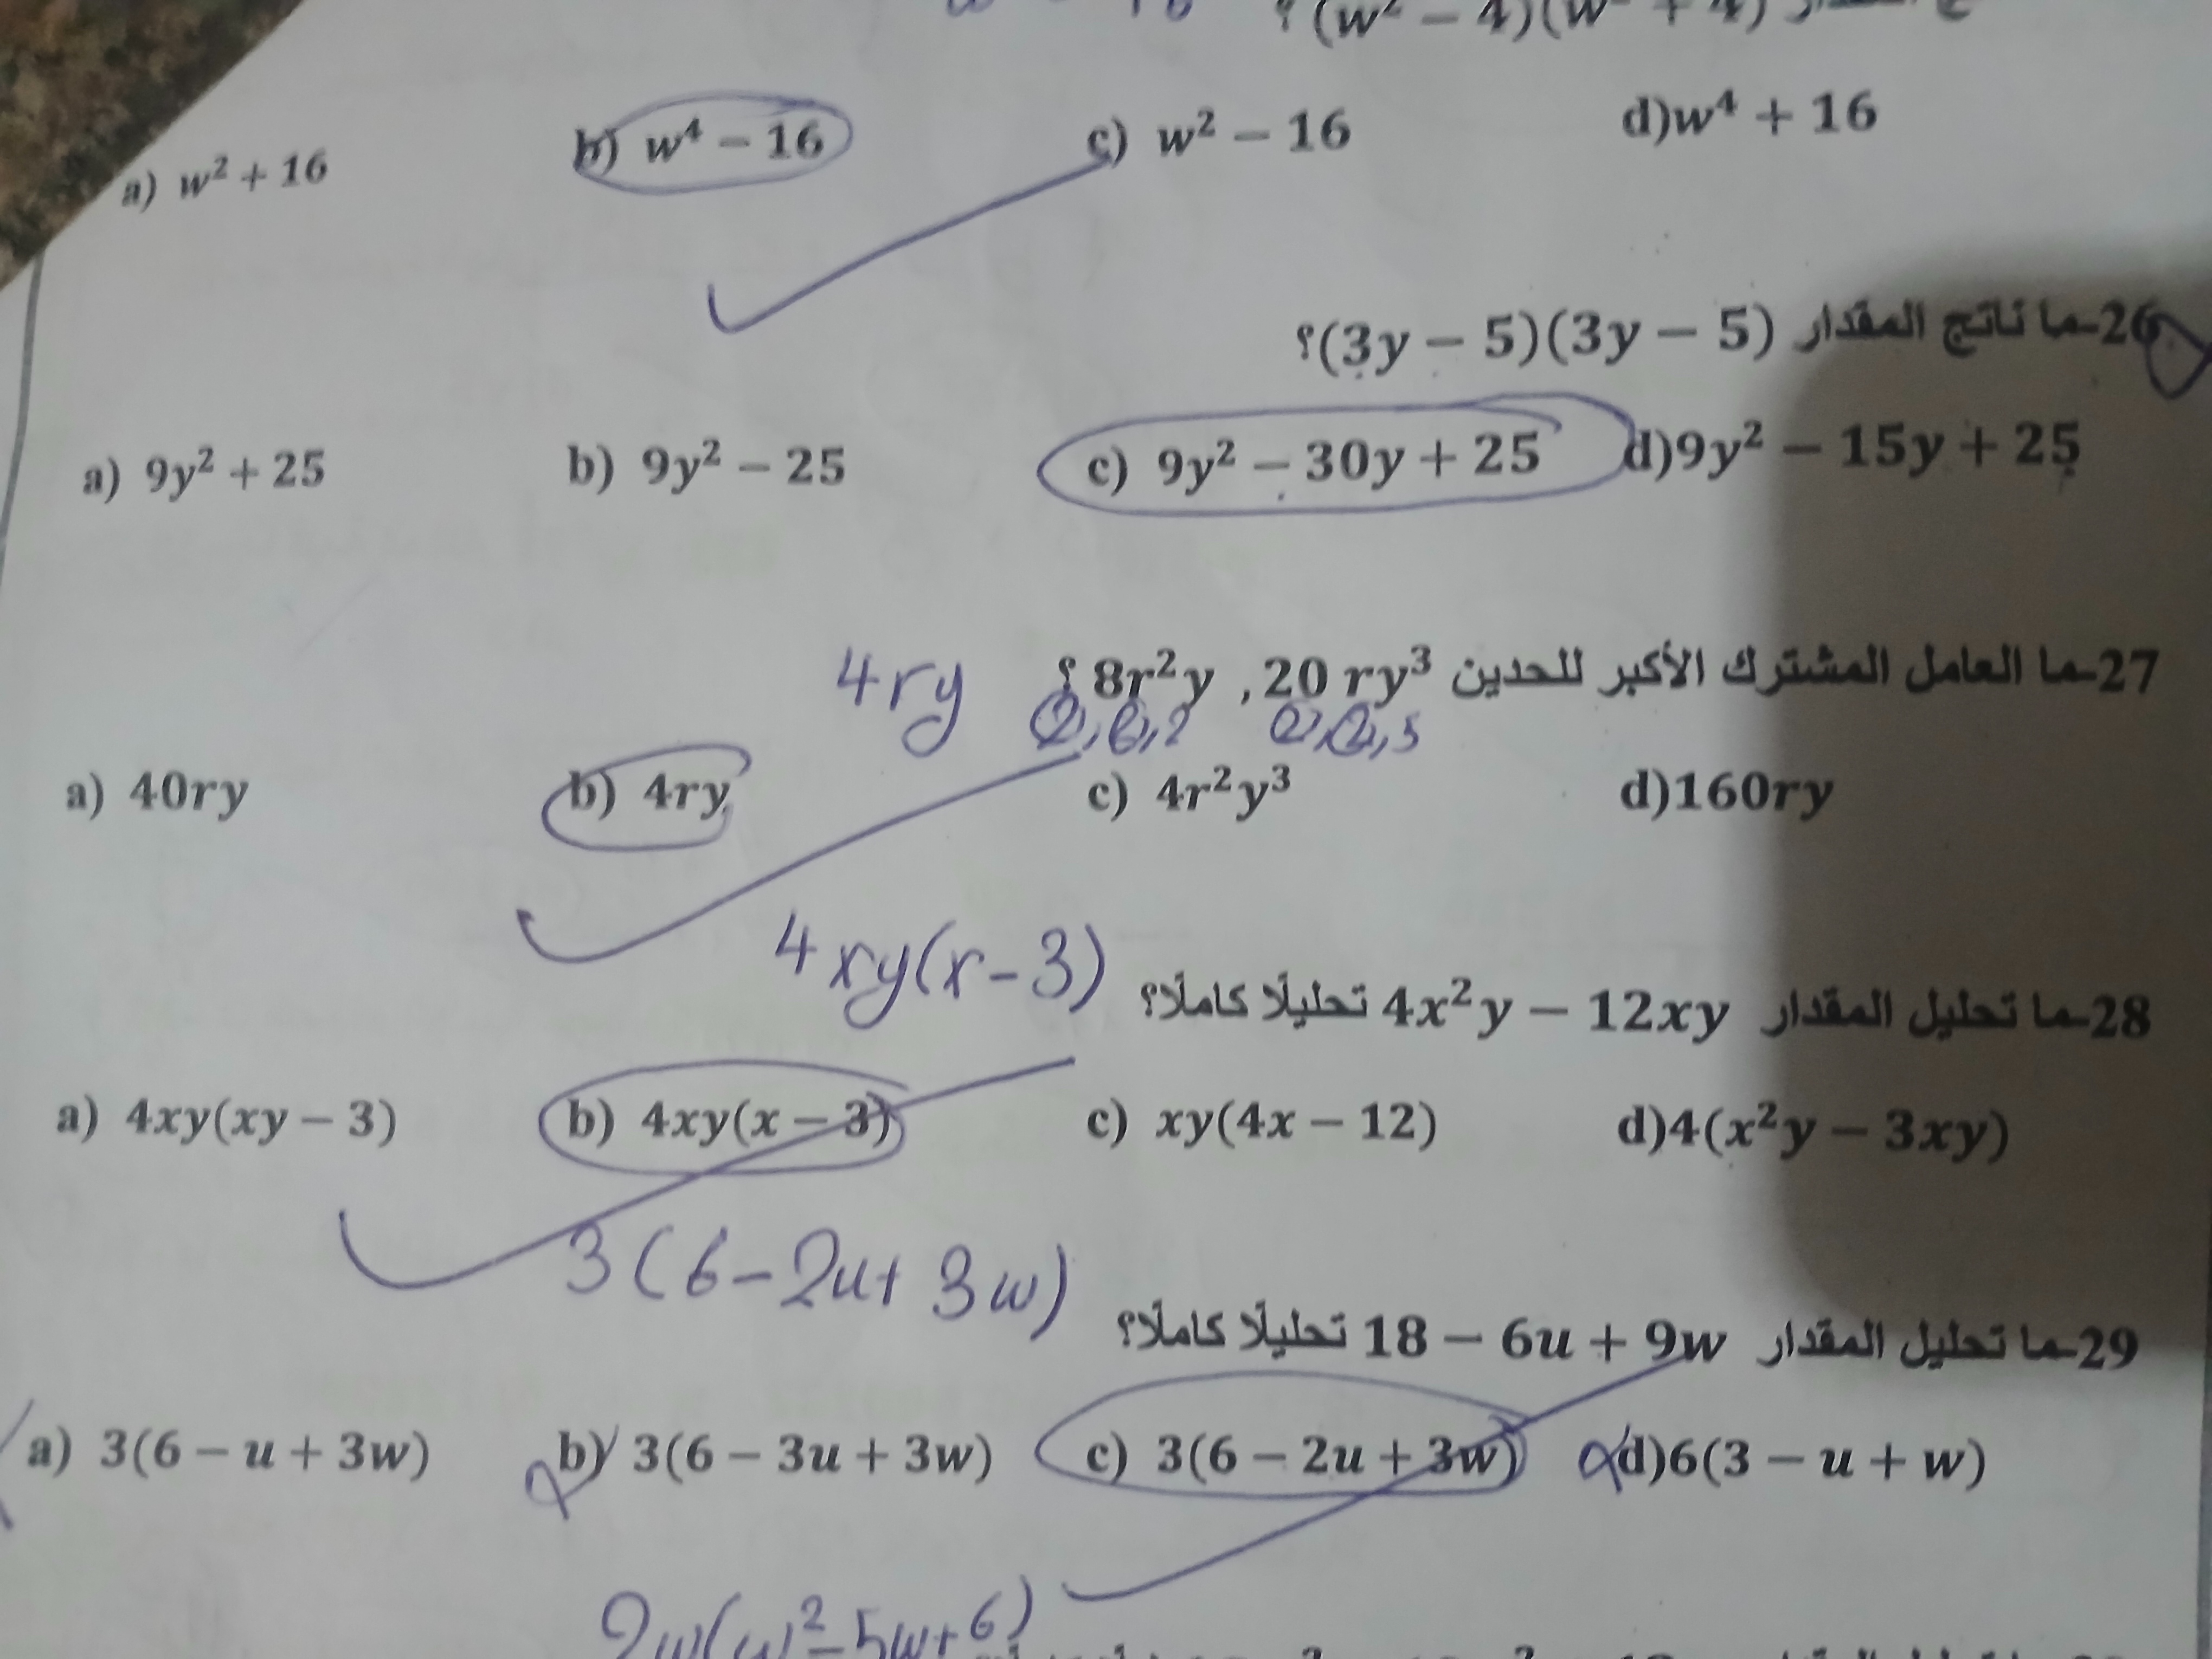 (w² − 4)(w² + 4) ؟
a) w² + 16 b) w⁴ − 16 c) w² − 16 d)w⁴ + 16
26-ما ناتج المقدار (3y − 5)(3y − 5)؟
a) 9y² + 25 b) 9y² − 25 c) 9y² − 30y + 25 d)9y² − 15y + 25
27-ما العامل المشترك الأكبر للحدين 8r²y , 20 ry³ ؟ 4ry
2, 2, 2 2, 2, 5
a) 40ry b) 4ry c) 4r²y³ d)160ry
4xy(x−3)
28-ما تحليل المقدار 4x²y − 12xy تحليلًا كاملًا؟
a) 4xy(xy − 3) b) 4xy(x − 3) c) xy(4x − 12) d)4(x²y − 3xy)
3(6−2u+3w)
29-ما تحليل المقدار 18 − 6u + 9w تحليلًا كاملًا؟
a) 3(6 − u + 3w) b) 3(6 − 3u + 3w) c) 3(6 − 2u + 3w) d)6(3 − u + w)
2w(w²−5w+6)